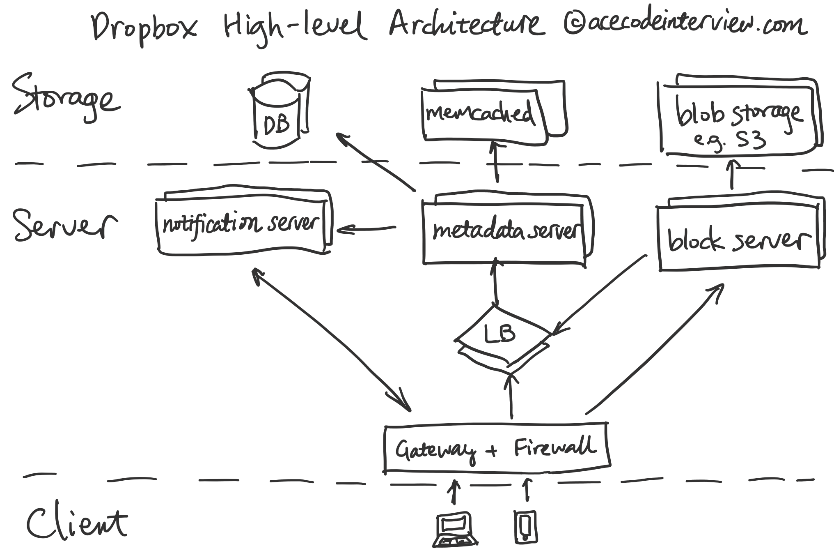 Dropbox High-level Architecture ©acecodeinterview.com
Storage
DB
memcached
blob storage
e.g. S3
Server
notification server
metadata server
block server
LB
Gateway + Firewall
Client